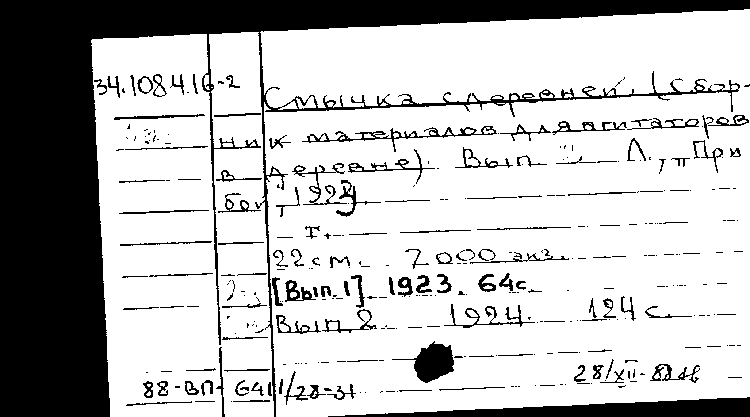 34.1084.16-2
Смычка с деревней. (Сбор-
ник материалов для агитаторов
в деревне). Вып. Л., "При
бой", 1924
т.
22 см. 7000 экз.
[Вып. 1]. 1923. 64 с.
Вып. 2. 1924. 124 с.
28/XII-88
88-ВП-6411/28-31